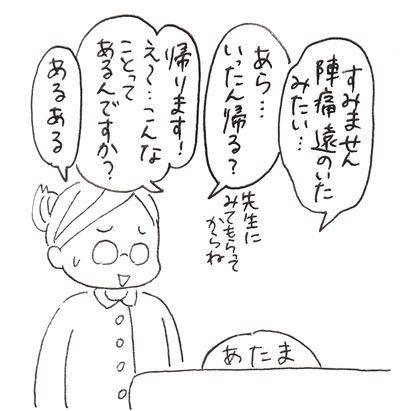 すみません
陣痛遠のいた
みたい…
あら…
いったん帰る?
先生に
みてもらって
からね
帰ります!
え〜…こんな
ことって
あるんですか?
あるある
あたま